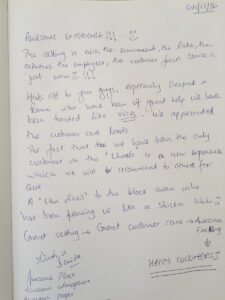 AWESOME EXPERIENCE!!!
The setting is nice, the environment, the lake, the
activities, the employees, the customer focus service is
just wow!!!
Hats off to you guys, especially Deepak +
who have been of great help. We have
been treated like VVIPs. We appreciated
the customer care loads
The fact that we have been the only
customer on the is a new experience
which we will be recommend to others for
sure.
A to the black swan who
has been following us like a
Great setting → Great customer care → Awesome
Feeding
HAPPY CUSTOMERS!!
Awesome Place
Awesome atmosphere
people